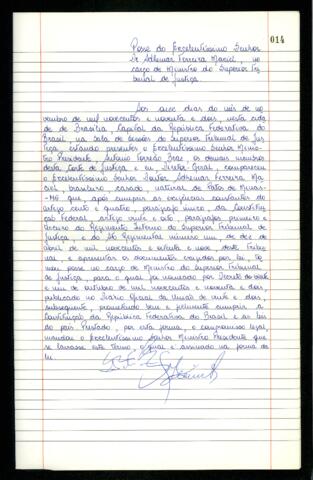 014
Posse do Excelentíssimo Senhor
Dr. Adhemar Ferreira Maciel, no
cargo de Ministro do Superior Tri
bunal de Justiça.
Aos onze dias do mês de no
vembro de mil novecentos e noventa e dois, nesta cida
de de Brasília, Capital da República Federativa do
Brasil, na Sala de Sessões do Superior Tribunal de Jus
tiça, estando presentes o Excelentíssimo Senhor Minis-
tro Presidente, Antônio Torreão Braz, os demais membros
desta Corte de Justiça e eu, Diretor-Geral, compareceu
o Excelentíssimo Senhor Doutor Adhemar Ferreira Ma
ciel, brasileiro, casado, natural de Patos de Minas-
-MG que, após cumprir as exigências constantes do
artigo cento e quatro, parágrafo único, da Constitui
ção Federal, artigo vinte e oito, parágrafos primeiro e
terceiro do Regimento Interno do Superior Tribunal de
Justiça, e do Ato Regimental número um, de dez de
abril de mil novecentos e oitenta e nove deste Tribu
nal, e apresentar os documentos exigidos por lei, to
mou posse no cargo de Ministro do Superior Tribunal
de Justiça, para o qual foi nomeado por Decreto de vinte
e um de outubro de mil novecentos e noventa e dois,
publicado no Diário Oficial da União de vinte e dois,
subsequente, prometendo bem e fielmente cumprir a
Constituição da República Federativa do Brasil e as leis
do país. Prestado, por esta forma, o compromisso legal,
mandou o Excelentíssimo Senhor Ministro Presidente que
se lavrasse este termo, o qual é assinado na forma da
lei.